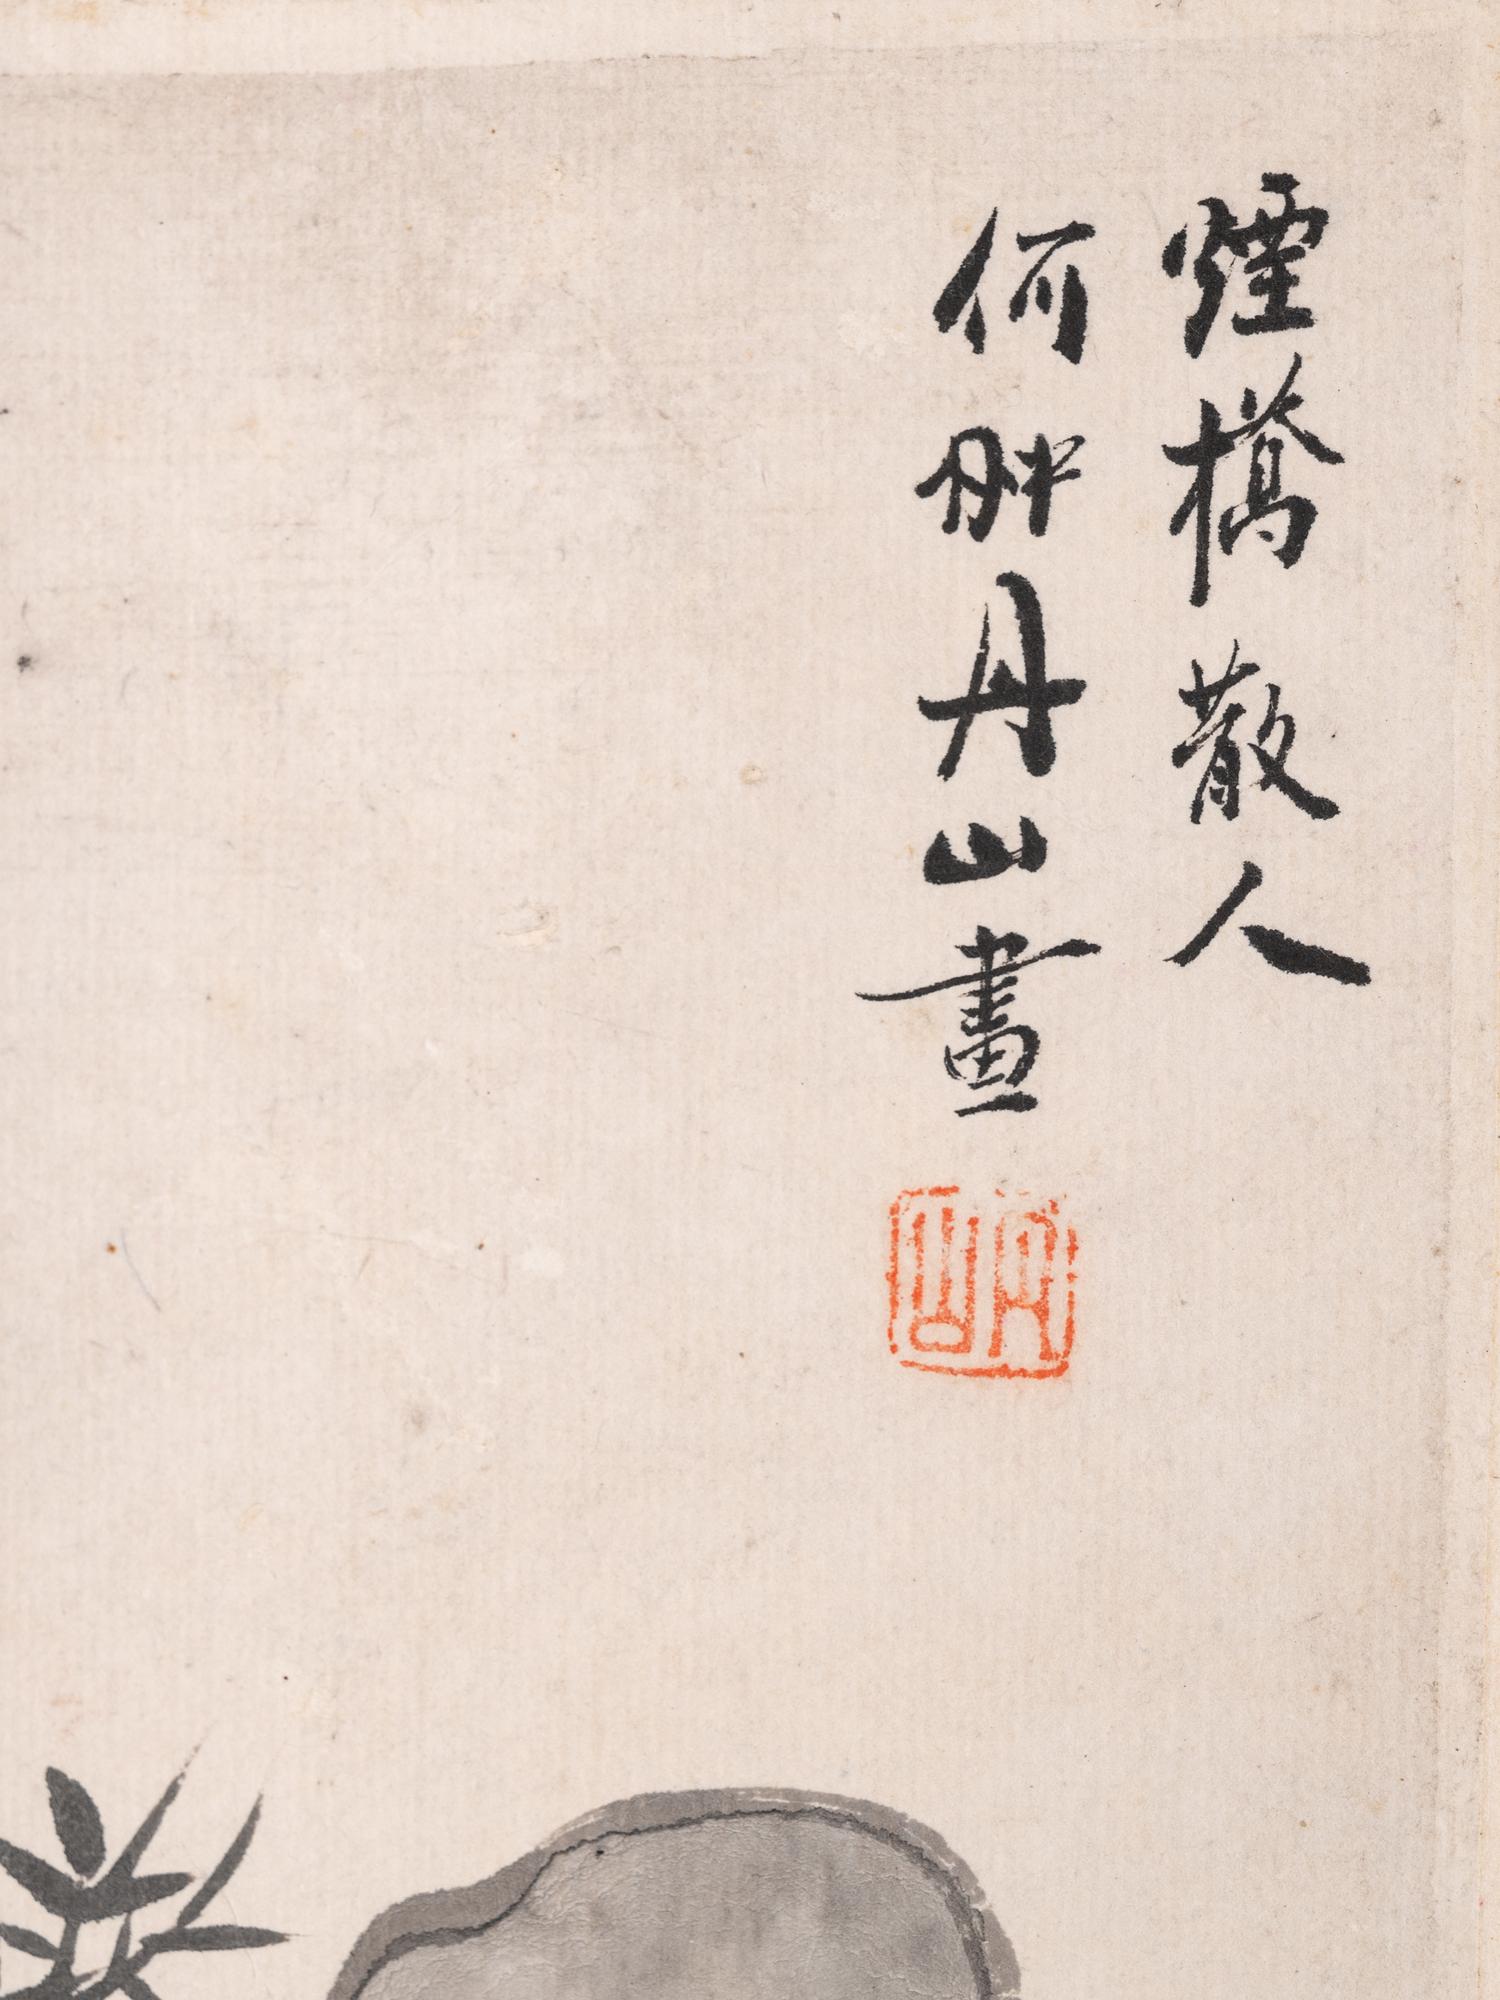 煙橋散人
何翀丹山畫